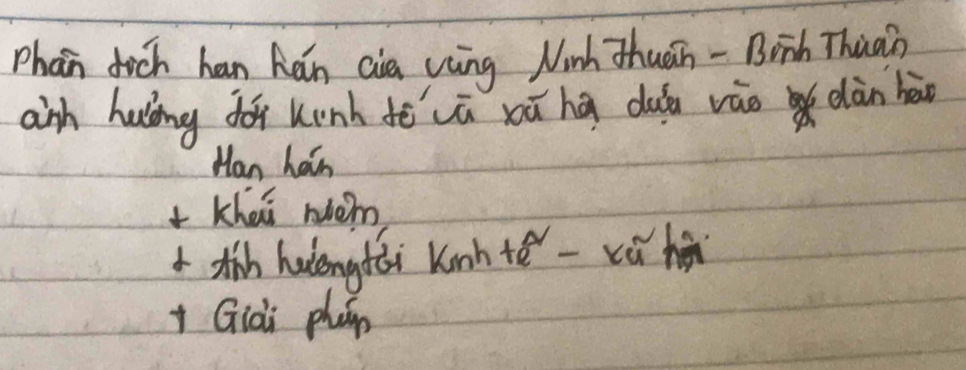 Phân tích hạn hán của vùng Ninh Thuận - Bình Thuận
ảnh hưởng tới kinh tế và xã hội dựa vào dàn bào
Hạn hán
+ Khái niệm
+ Ảnh hưởng tới kinh tế - xã hội
+ Giải pháp